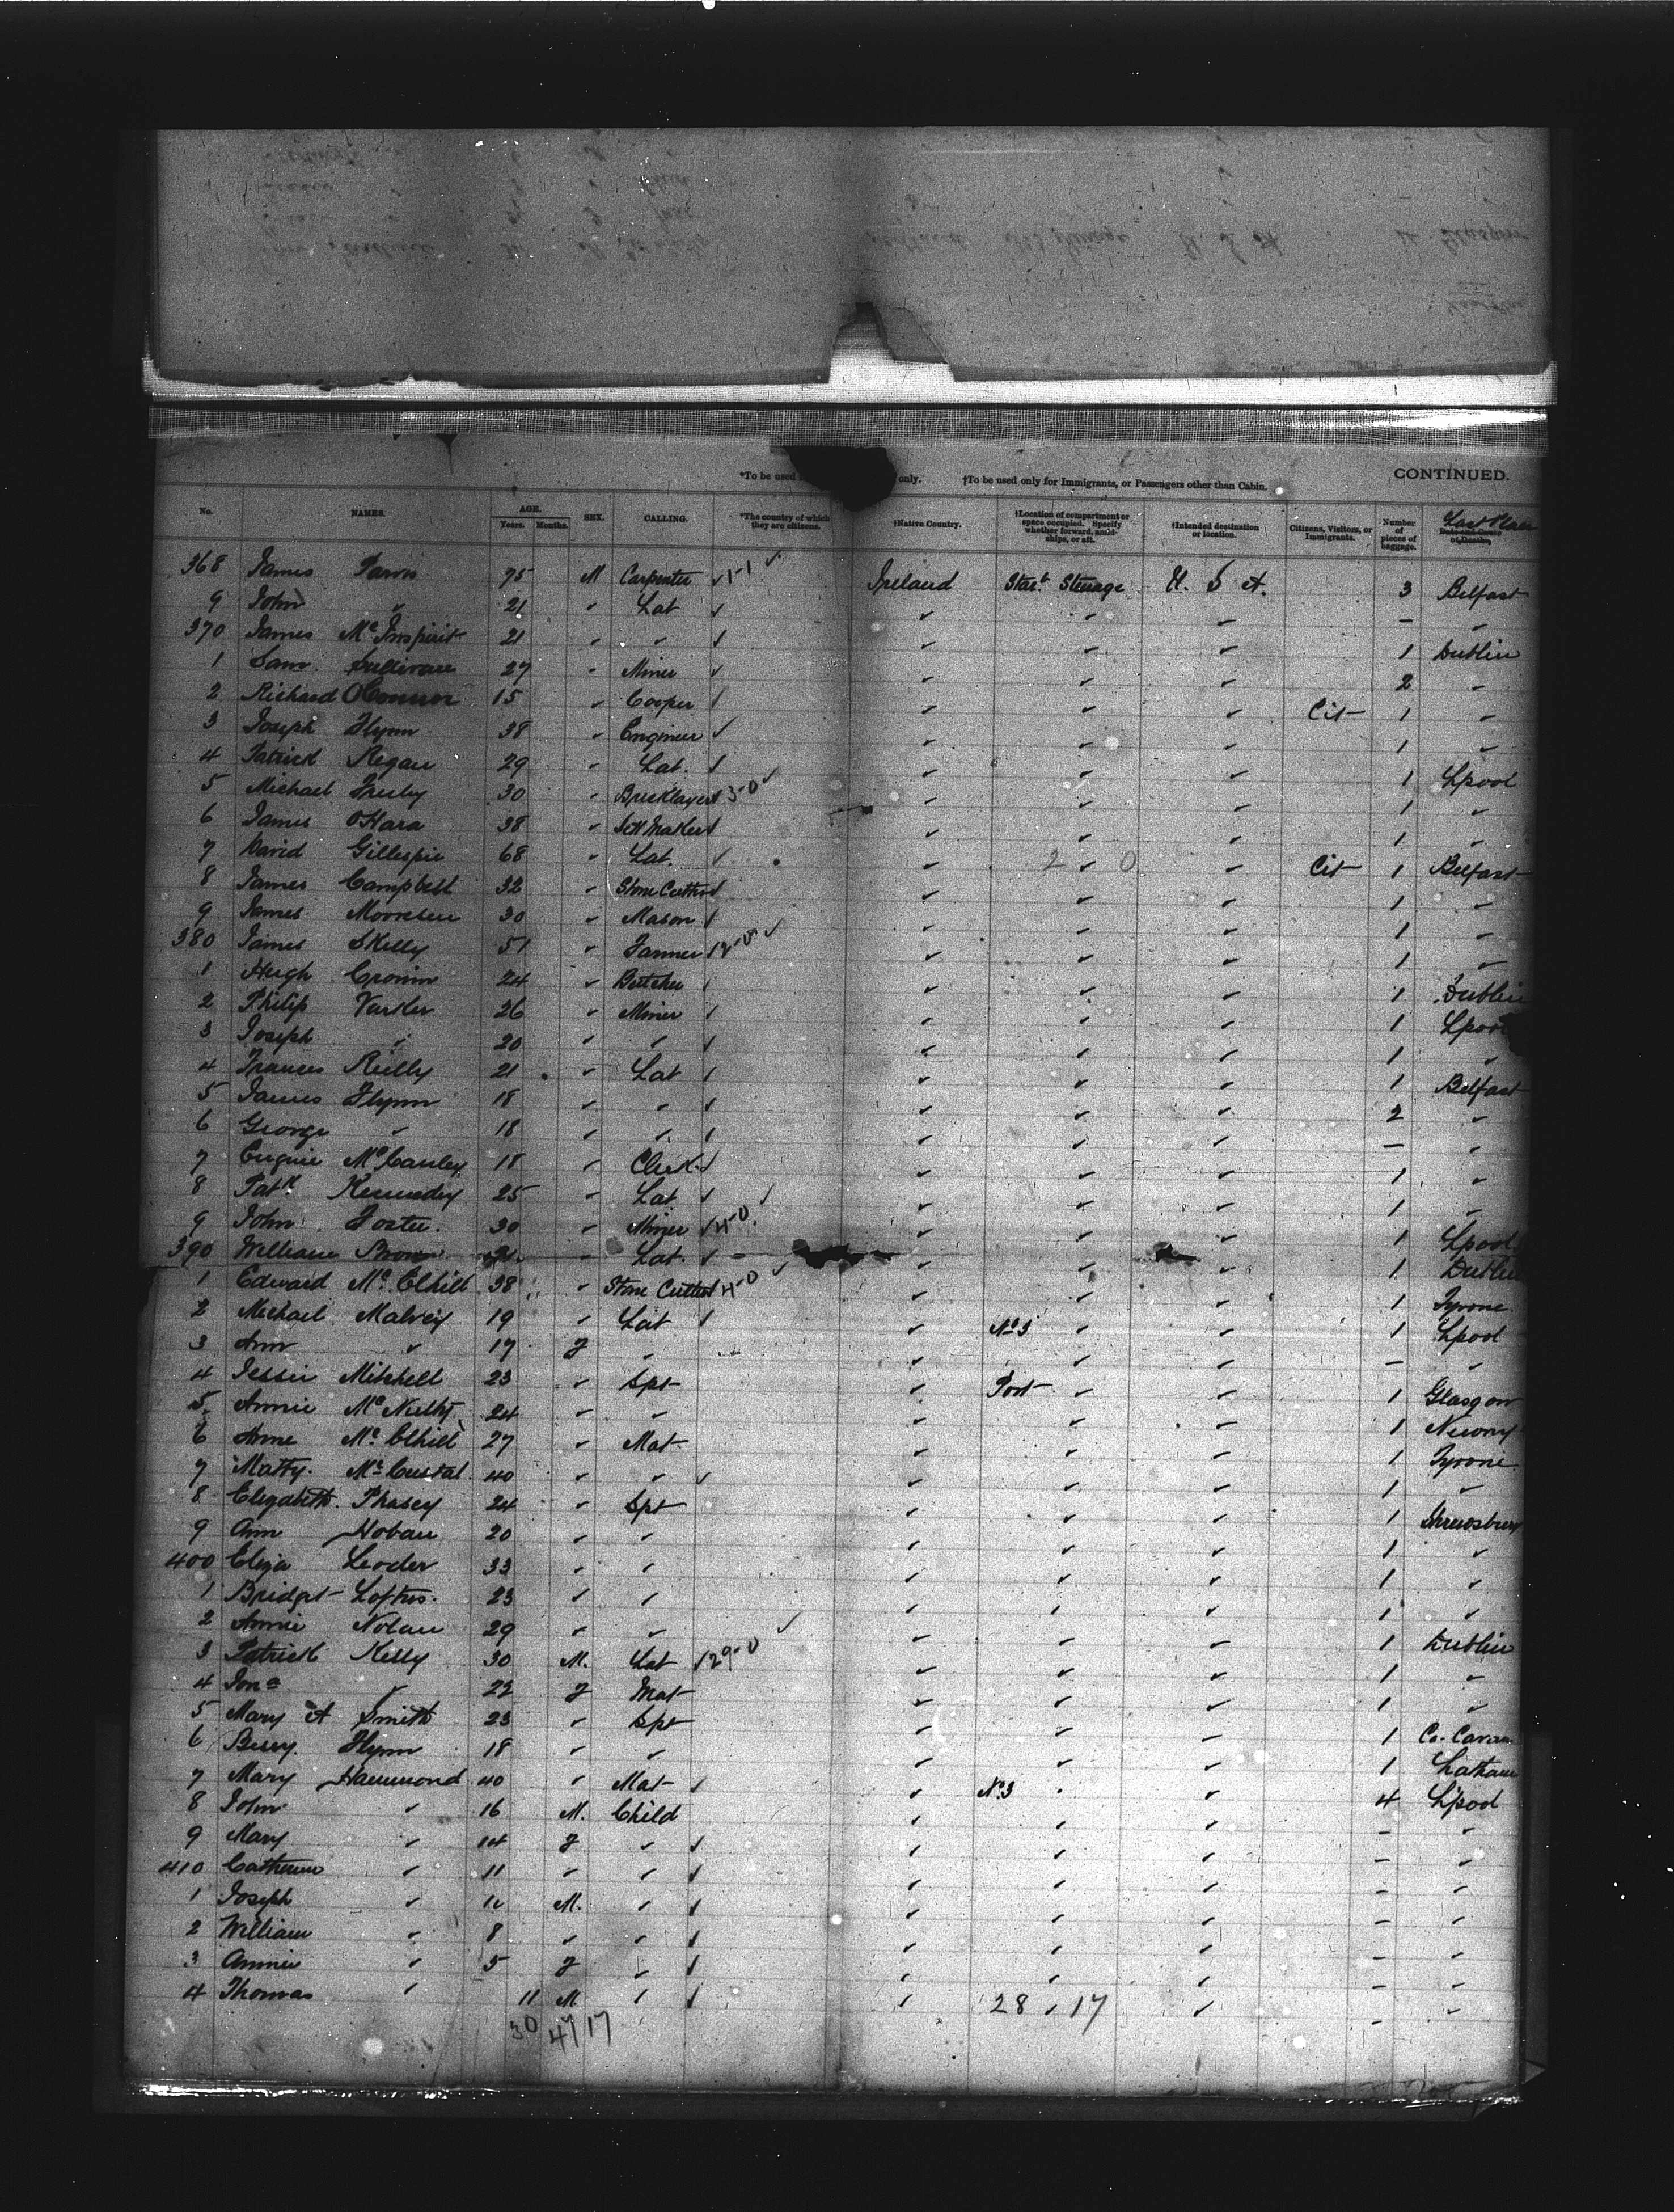 CONTINUED.
*To be used only. †To be used only for Immigrants, or Passengers other than Cabin.
No. NAMES. AGE. Years. Months. SEX. CALLING. *The country of which they are citizens. †Native Country. †Location of compartment or space occupied. Specify whether forward, amidships, or aft. †Intended destination or location. Citizens, Visitors, or Immigrants. Number of pieces of baggage. Last Place
368 James 75 M Carpenter 1-1 Ireland Star.t Steerage U. S. A. 3 Belfast
9 John " 21 " Lab " " " – "
370 James 21 " " " " " 1 Dublin
1 Sam Sullivan 27 " Miner " " " 2 "
2 Richard O'Connor 15 " Cooper " " " Cit 1 "
3 Joseph Flynn 38 " Engineer " " " 1 "
4 Patrick Regan 29 " Lab. " " " 1 Lpool
5 Michael 30 " Bricklayer 3-0 " " " 1 "
6 James O'Hara 38 " Sett Maker " " " 1 "
7 David Gillespie 68 " Lab. " 2 " 0 " Cit 1 Belfast
8 James Campbell 32 " Stone Cutter " " " 1 "
9 James 30 " Mason " " " 1 "
380 James Skelly 51 " Farmer " " " 1 "
1 Hugh Cronin 24 " Butcher " " " 1 Dublin
2 Philip 26 " Miner " " " 1 Lpool
3 Joseph " 20 " " " " " 1 "
4 Frances Reilly 21 " Lab " " " 1 Belfast
5 James Flynn 18 " " " " " 2 "
6 George " 18 " " " " " – "
7 Eugine McCauley 18 " Clerk " " " 1 "
8 Patk Kennedy 25 " Lab " " " 1 "
9 John Foster 30 " Miner 4-0 " " " 1 Lpool
390 William Brown 21 " Lab. " " " 1 Dublin
1 Edward McElhill 38 " Stone Cutter 4-0 " " " 1 Tyrone
2 Michael Malvey 19 " Lab " No 3 " " 1 Lpool
3 Ann " 17 F " " " " – "
4 Jessie Mitchell 23 " Spt " Port " " 1 Glasgow
5 Annie 24 " " " " " 1 Newry
6 Anne McElhill 27 " Mat " " " 1 Tyrone
7 Matty. 40 " " " " " 1 "
8 Elizabeth Phasey 24 " Spt " " " 1 Shrewsbury
9 Ann Hoban 20 " " " " " 1 "
400 Eliza Leoder 33 " " " " " 1 "
1 Bridget Loftus. 23 " " " " " 1 "
2 Annie Nolan 29 " " " " " 1 Dublin
3 Patrick Kelly 30 M. Lab 29-0 " " " 1 "
4 " 22 F Mat " " " 1 "
5 Mary A Smith 23 " Spt " " " 1 Co. Cavan
6 Flynn 18 " " " " " 1
7 Mary Hammond 40 " Mat " No.3 " " 4 L'pool
8 John " 16 M. Child " " " – "
9 Mary " 14 F " " " " – "
410 Catherine " 11 " " " " " – "
1 Joseph " M. " " " " – "
2 William " 8 " " " " " – "
3 Annie " 5 F " " " " – "
4 Thomas " 11 M " " 28 " 17 " – "
30 4/17